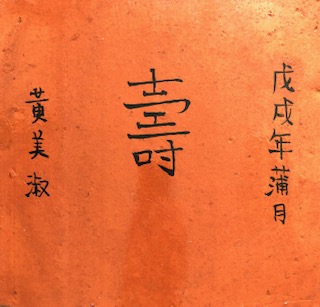 戊戌年蒲月
壽
黄美淑